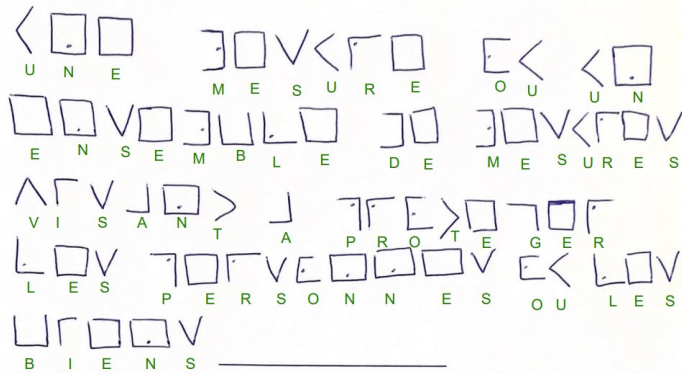 UNE MESURE OU UN
ENSEMBLE DE MESURES
VISANT A PROTEGER
LES PERSONNES OU LES
BIENS